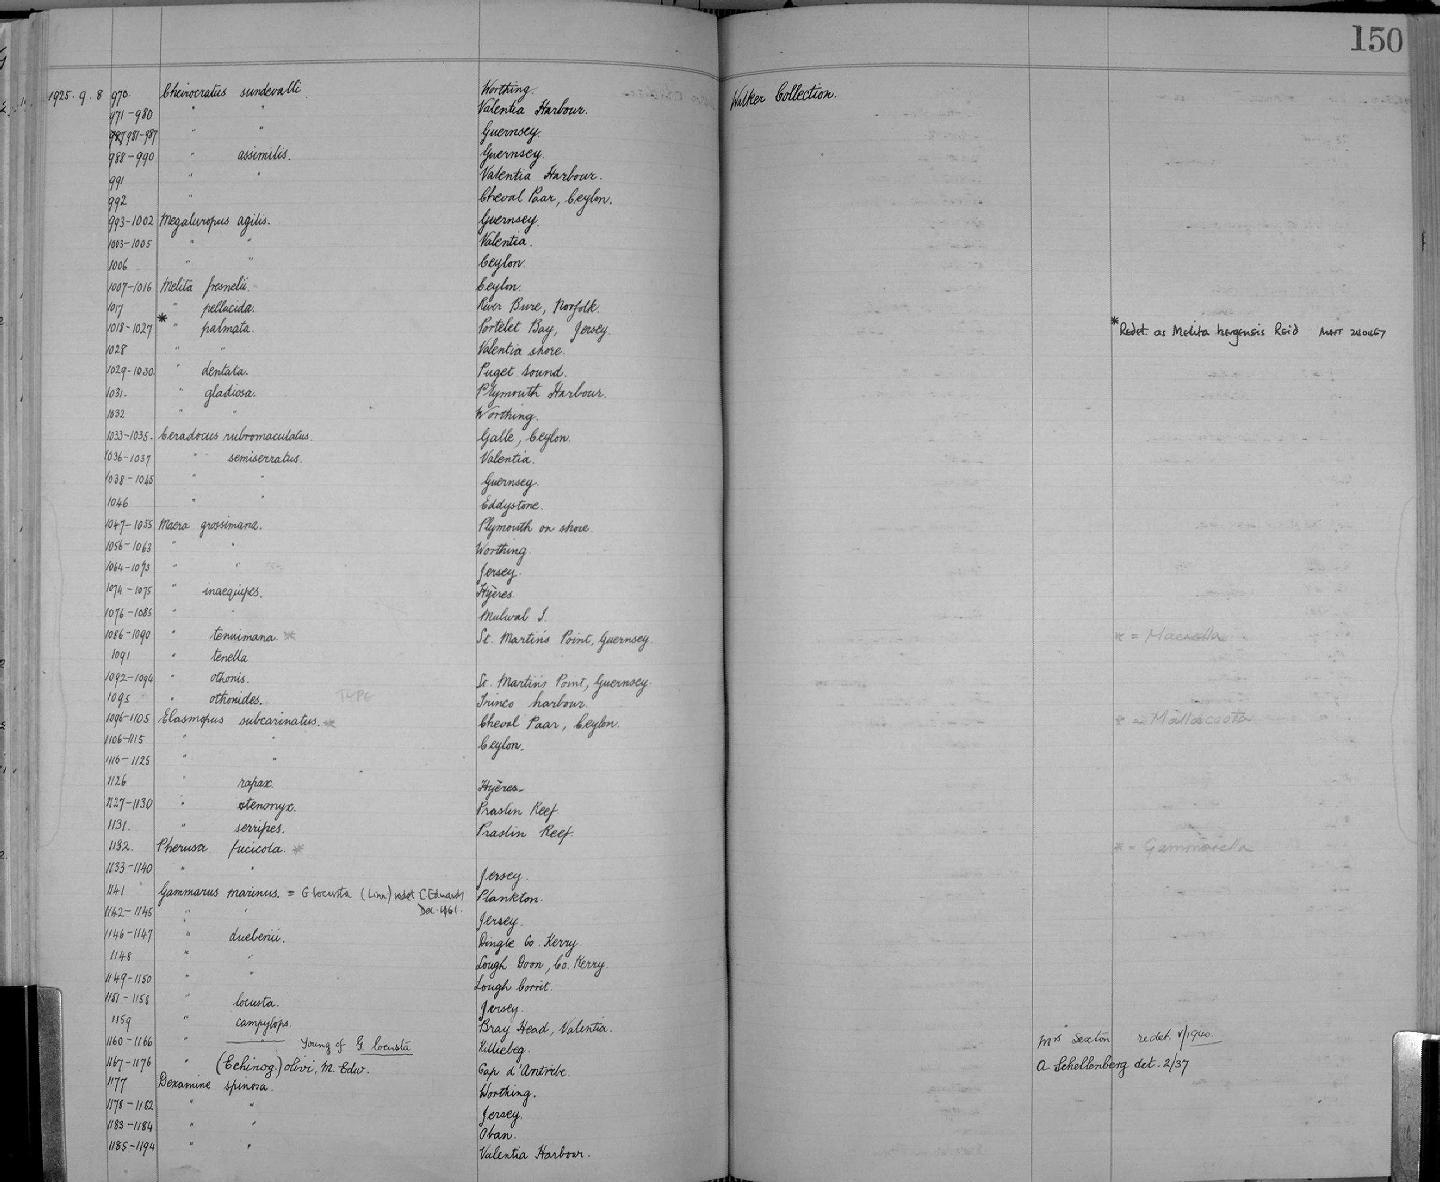 150
1925.9.8 970. Cheirocratus sundevalli. Worthing. Walker Collection.
971-980 " " Valentia Harbour.
981-987 " " Guernsey.
988-990 " assimilis. Guernsey.
991 " " Valentia Harbour.
992 " Cheval Paar, Ceylon.
993-1002 Megaluropus agilis. Guernsey.
1003-1005 " " Valentia.
1006 " " Ceylon.
1007-1016 Melita fresnelii. Ceylon.
1017 " pellucida. River Bure, Norfolk.
1018-1027 * " palmata. Portelet Bay, Jersey. * Redet. as Melita hergensis Reid
1028 " " Valentia shore.
1029-1030. " dentata. Puget Sound.
1031. " gladiosa. Plymouth Harbour.
1032 " " Worthing.
1033-1035. Ceradocus rubromaculatus. Galle, Ceylon.
1036-1037 " semiserratus. Valentia.
1038-1045 " " Guernsey.
1046 " " Eddystone.
1047-1055 Maera grossimana. Plymouth on shore.
1056-1063 " " Worthing.
1064-1073 " " Jersey.
1074-1075 " inaequipes. Hyères.
1076-1085 " " I.
1086-1090 " tenuimana. * St. Martin's Point, Guernsey. * = Maerella
1091 " tenella
1092-1094 " othonis. St. Martin's Point, Guernsey.
1095 " othonides. TYPE Trinco harbour.
1096-1105 Elasmopus subcarinatus. * Cheval Paar, Ceylon. * = Mallacoota
1106-1115 " " Ceylon.
1116-1125 " "
1126 " rapax. Hyères.
1127-1130 " stenonyx. Praslin Reef
1131. " serripes. Praslin Reef.
1132. Pherusa fucicola. * * = Gammarella
1133-1140 " " Jersey.
1141 Gammarus marinus. = G locusta (Linn) redet C Edwards Dec. 1961. Plankton.
1142-1145 " " Jersey.
1146-1147 " duebenii. Dingle Co. Kerry.
1148 " " Lough Doon, Co. Kerry.
1149-1150 " " Lough Corrit.
1151-1158 " locusta. Jersey.
1159 " campylops. Bray Head, Valentia.
1160-1166 " Young of G. locusta Killiebeg. Mrs Sexton redet.
1167-1176 " (Echinog.) olivi, M. Edw. Cap d'Antibe. A Schellenberg det. 2/37
1177 Dexamine spinosa. Worthing.
1178-1182 " " Jersey.
1183-1184 " " Oban.
1185-1194 " " Valentia Harbour.